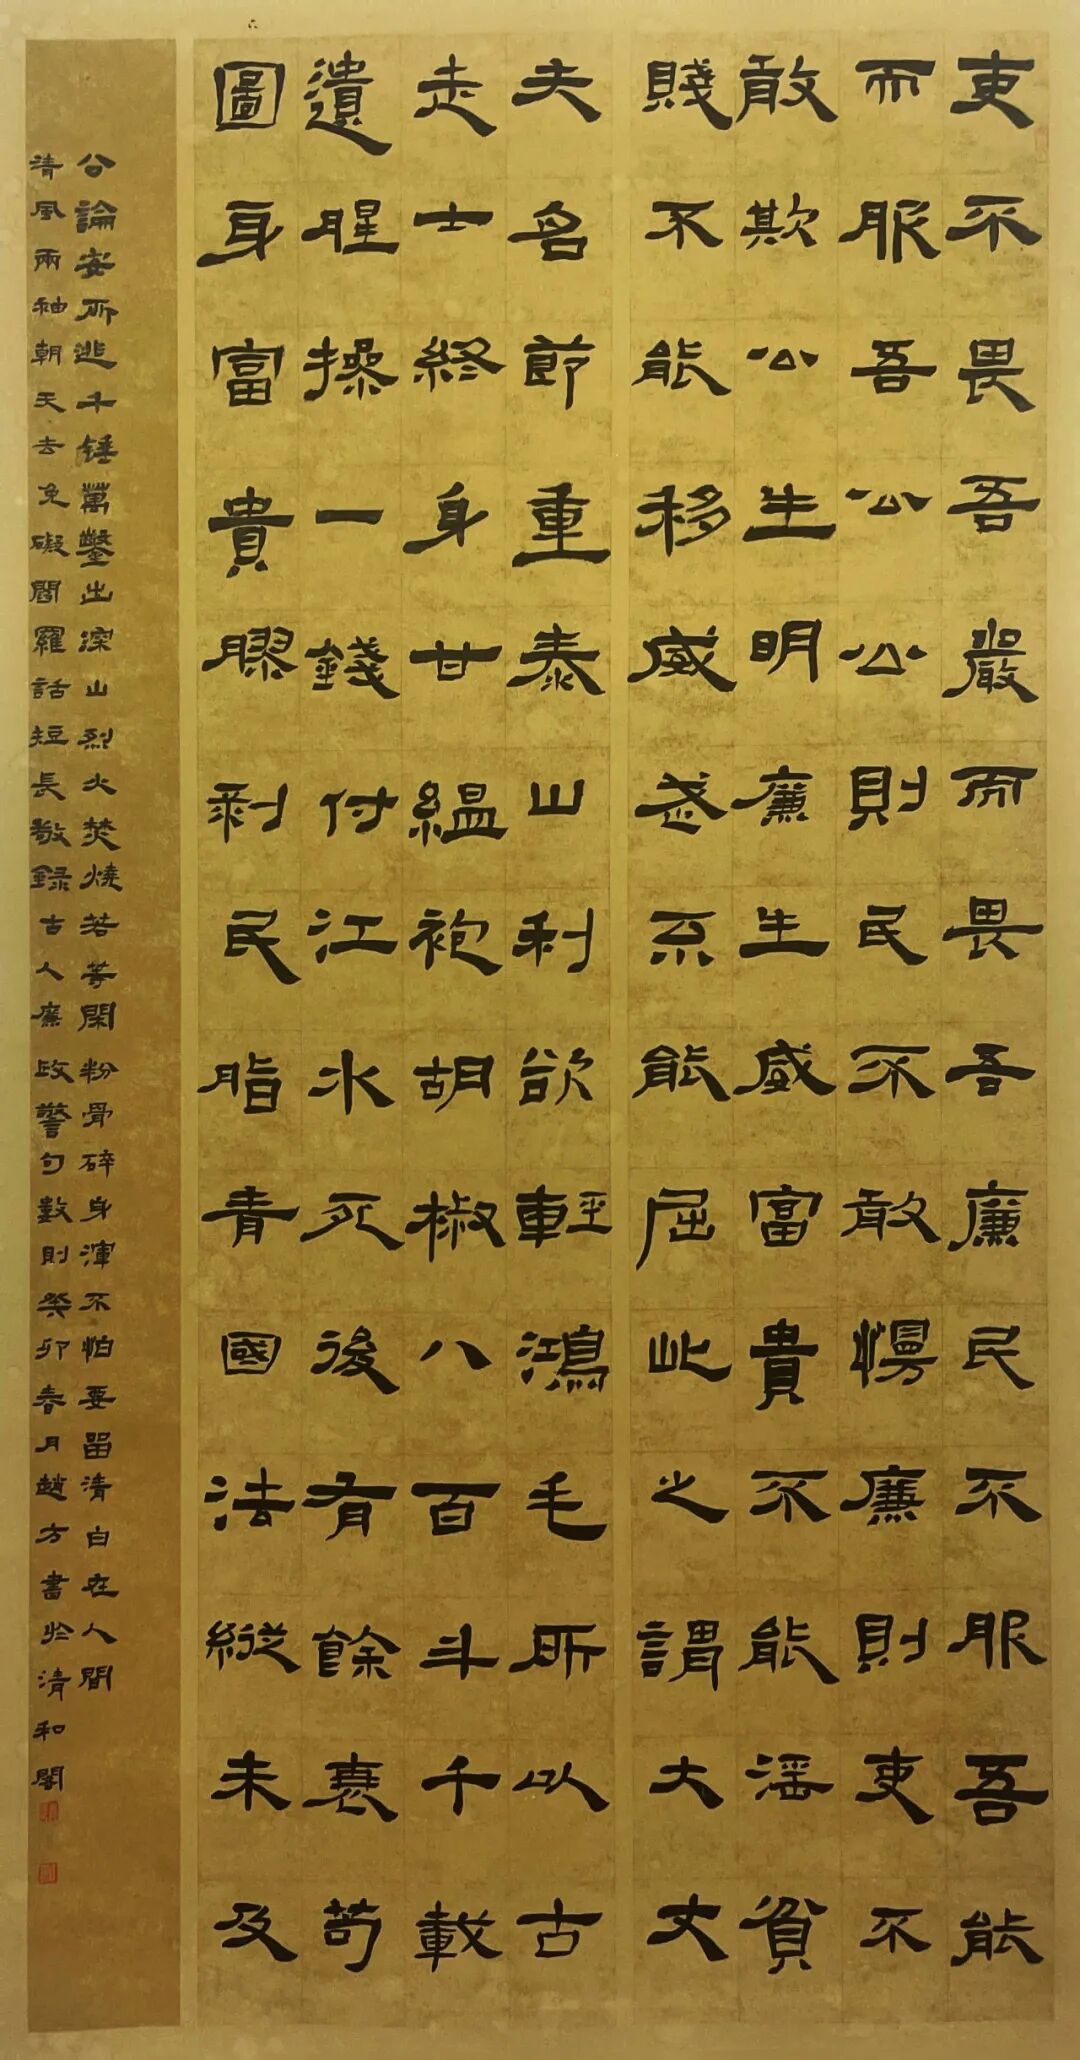 吏不畏吾嚴而畏吾廉民不服吾能
而服吾公公則民不敢慢廉則吏不
敢欺公生明廉生威富貴不能淫貧
賤不能移威武不能屈此之謂大丈
夫名節重泰山利欲輕鴻毛所以古
走士終身甘縕袍胡椒八百斗千載
遺腥操一錢付江水死後有餘裹苟
圖身富貴膠剥民脂青國法縱未及
公論安所逃千锤萬鑿出深山烈火焚燒若等閑粉骨碎身渾不怕要留清白在人間
清風兩袖朝天去免礙閻羅話短長敬録古人廉政警句數則癸卯春月趙方書於清和閣